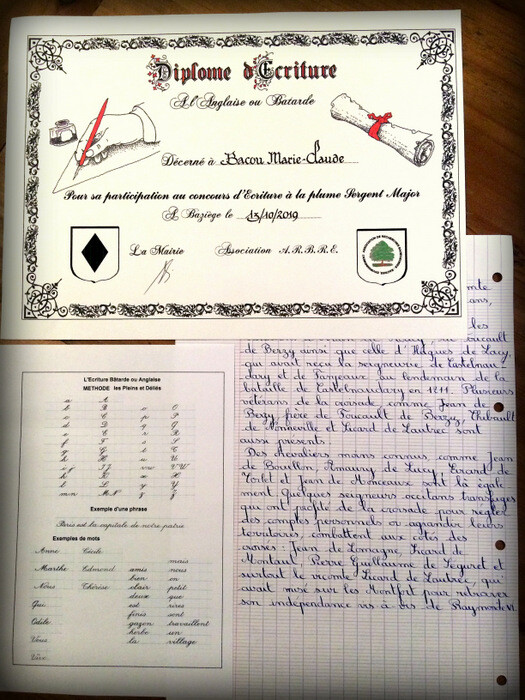 Diplome d'Ecriture
A l'Anglaise ou Batarde
Décerné à Bacou Marie-Claude
Pour sa participation au concours d'Ecriture à la plume Sergent Major
A Baziège le 13/10/2019
La Mairie Association A.R.B.R.E.
L'Ecriture Bâtarde ou Anglaise
METHODE les Pleins et Déliés
a A
b B o O
c C p P
d D q Q
e E r R
f F s S
g G t T
h H u U
i-j I J v-w V W
k K x X
l L y Y
m-n M N z Z
Exemple d'une phrase
Paris est la capitale de notre patrie
Exemples de mots
Anne Cécile
mais
Marthe Edmond amis nous
bien on
Nous Thérèse clair petit
deux que
Qui est rires
finis sont
Odile gazon travaillent
herbe un
Vous la village
les
de Berzy ainsi que celle d'Hugues de Lacy,
qui avait reçu la seigneurie de Castelnau-
dary et de Fanjeaux au lendemain de la
bataille de Castelnaudary en 1211. Plusieurs
vétérans de la croisade comme Jean de
Berzy frère de Foucault de Berzy, Thibault
de Nonneville et Sicard de Lautrec sont
aussi présents.
Des chevaliers moins connus, comme Jean
de Bouillon, Amaury de Lucy, Evrard de
Torlet et Jean de Monceaux sont là égale
ment Quelques seigneurs occitans transfuges
qui ont profité de la croisade pour régler
des comptes personnels ou agrandir leurs
territoires, combattent aux côtés des
croisés : Jean de Lomagne, Sicard de
Montaut, Pierre Guillaume de Séguret et
surtout le vicomte Sicard de Lautrec, qui
avait misé sur les Montfort pour retrouver
son indépendance vis à vis de Raymond VI